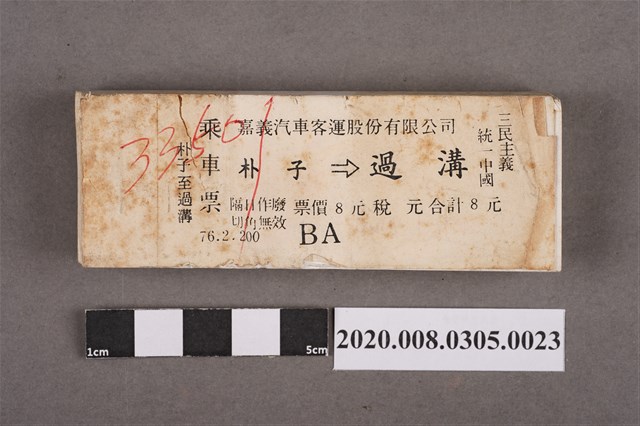 三民主義
統一中國
嘉義汽車客運股份有限公司
乘車票
朴子至過溝
朴子⇨過溝
票價8元稅 元合計8元
隔日作廢
切角無效
76.2.200
BA
1cm
5cm
2020.008.0305.0023